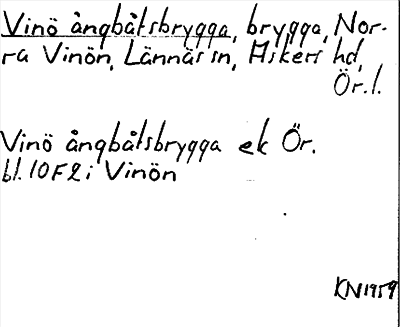 Vinö ångbåtsbrygga, brygga, Nor-
ra Vinön, Lännäs sn, Askers hd,
Ör. l.
Vinö ångbåtsbrygga ek Ör.
bl. 10F2i Vinön
KN1959